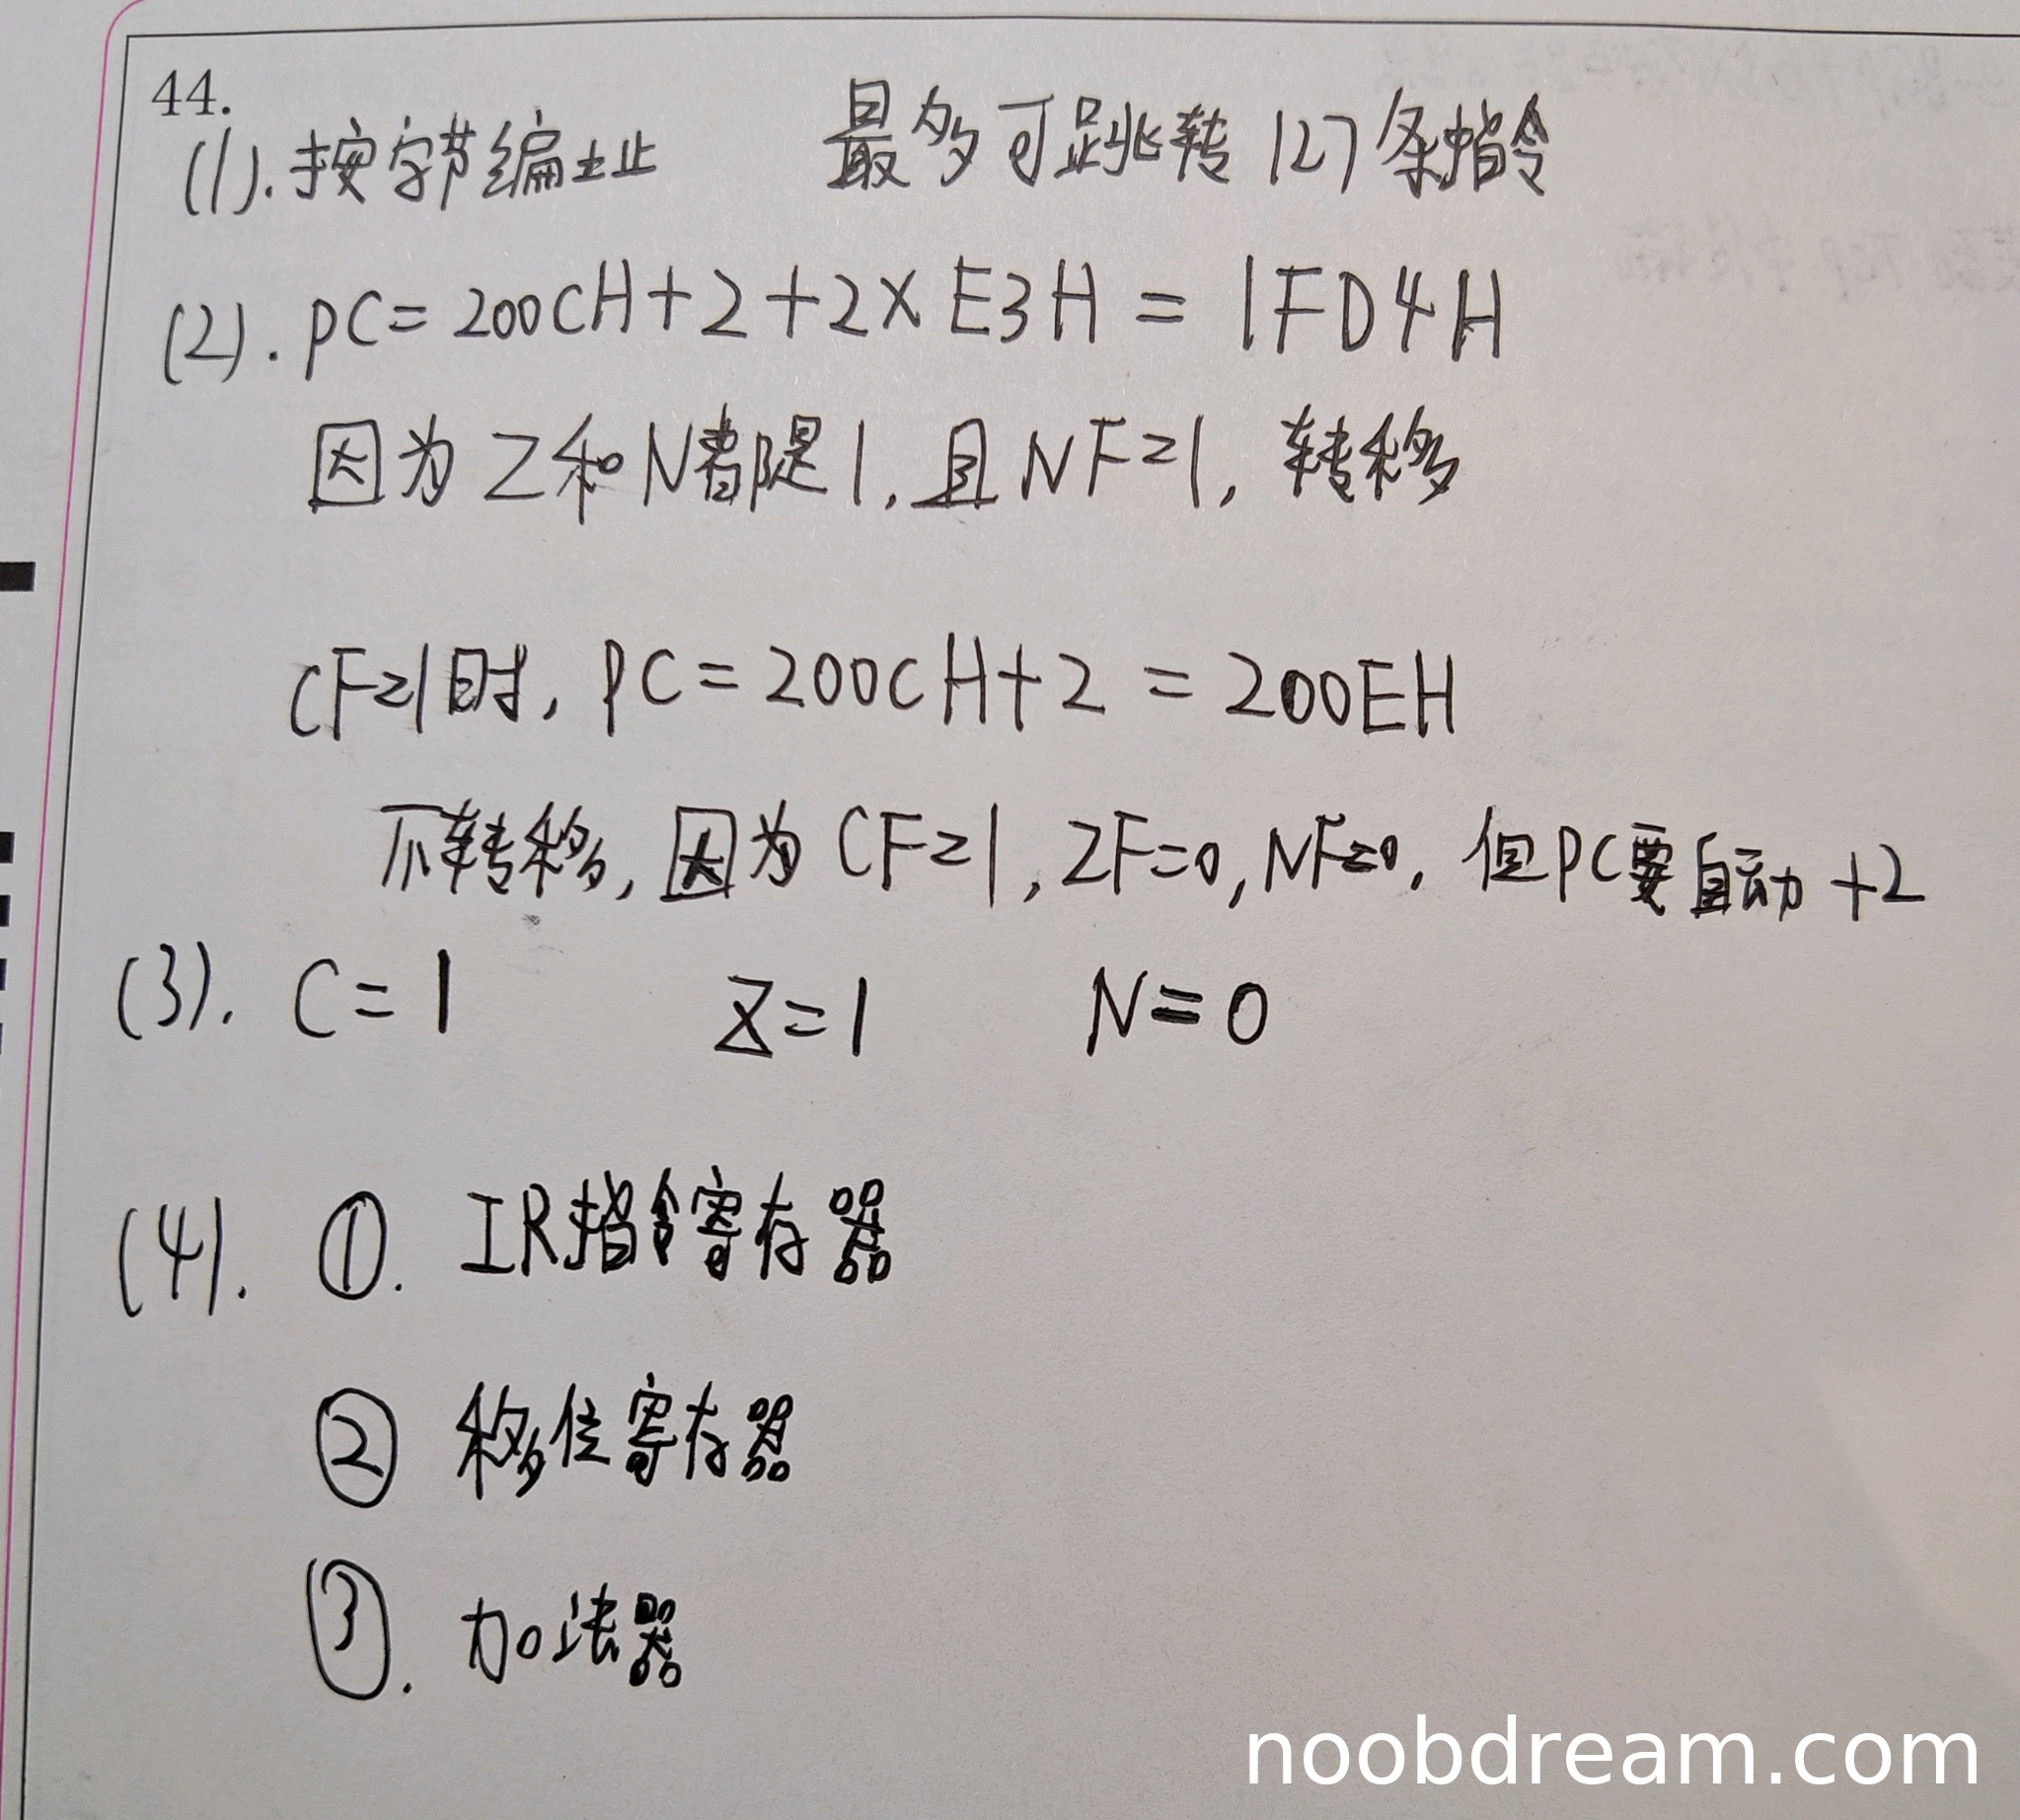 44.
(1). 按字节编址 最多可跳转127条指令
(2). PC = 200CH+2+2×E3H = 1FD4H
因为Z和N都是1, 且NF=1, 转移
CF=1时, PC = 200CH+2 = 200EH
不转移, 因为CF=1, ZF=0, NF=0, 但PC要自动+2
(3). C=1 Z=1 N=0
(4). ①. IR指令寄存器
② 移位寄存器
③. 加法器
noobdream.com